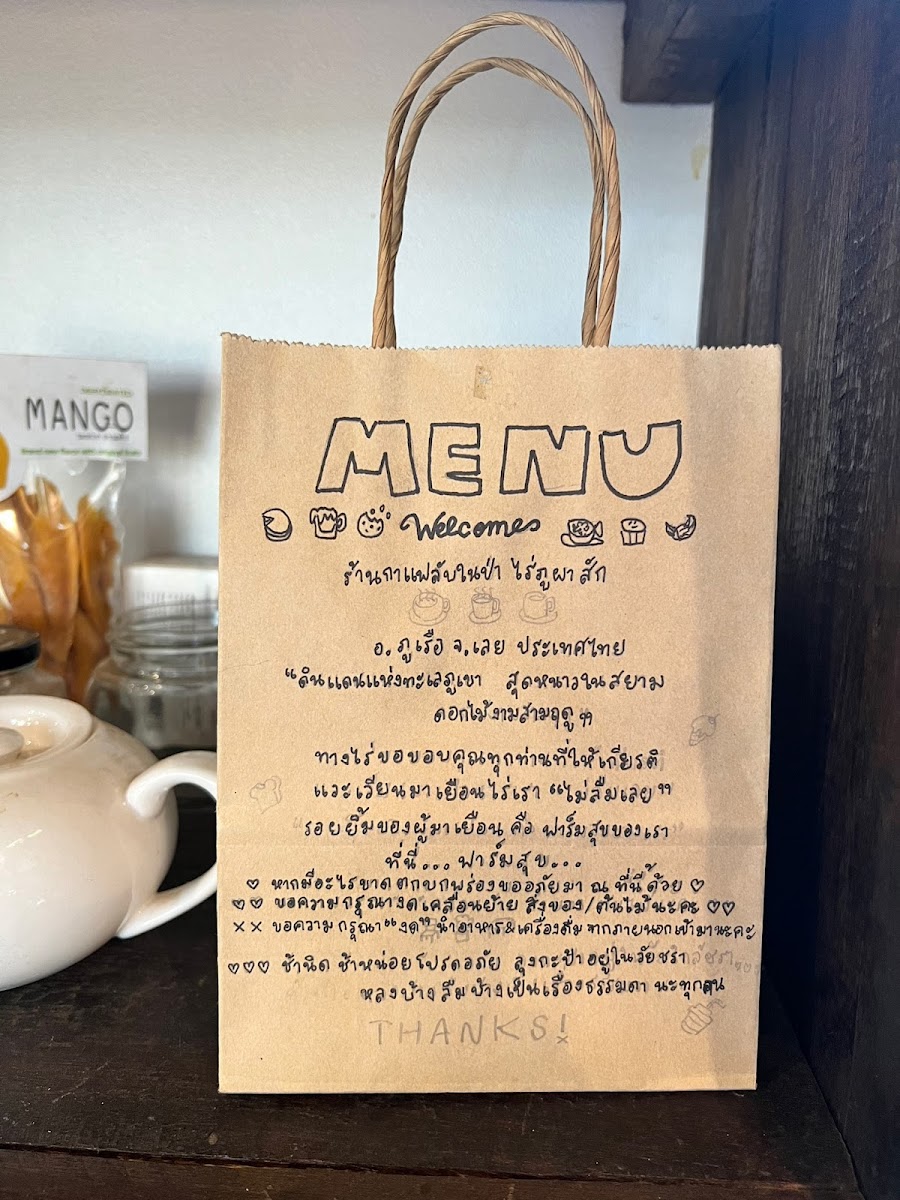 MANGO
MENU
Welcomes
ร้านกาแฟลับในป่า ไร่ภูผาสัก
อ.ภูเรือ จ.เลย ประเทศไทย
"ดินแดนแห่งทะเลภูเขา สุดหนาวในสยาม
ดอกไม้งามสามฤดู"
ทางไร่ขอขอบคุณทุกท่านที่ให้เกียรติ
แวะเวียนมาเยือนไร่เรา "ไม่ลืมเลย"
"รอยยิ้มของผู้มาเยือน คือ ฟาร์มสุขของเรา"
ที่นี่... ฟาร์มสุข...
♡ หากมีอะไรขาดตกบกพร่องขออภัยมา ณ ที่นี้ด้วย ♡
♡♡ ขอความกรุณางดเคลื่อนย้าย สิ่งของ/ต้นไม้ นะคะ ♡♡
×× ขอความกรุณา "งด" นำอาหาร&เครื่องดื่ม จากภายนอกเข้ามานะคะ
♡♡♡ ช้านิด ช้าหน่อยโปรดอภัย ลุงกะป้าอยู่ในวัยชรา
หลงบ้าง ลืมบ้างเป็นเรื่องธรรมดา นะทุกคน
THANKS!